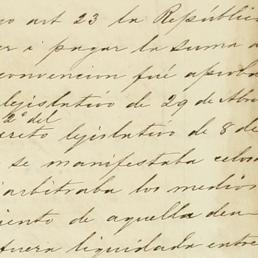 o art 23 la Repúblic
er i pagar la suma d
convencion fué aproba
legislativo de 29 de Abr
2º del
creto legislativo de 8 de
se manifestaba celos
arbitraba los medios
iento de aquella deu
fuera liquidada entre